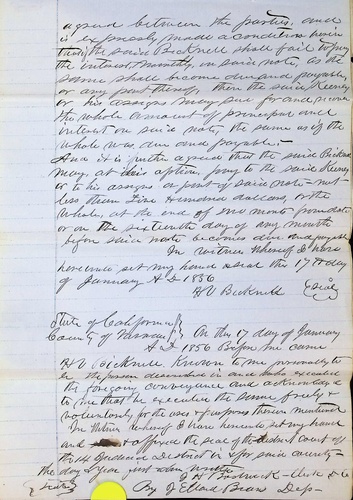 agreed between the parties, and
is expressly made a condition herein
that if the said Bicknell shall fail to pay
the interest monthly, on said note, as the
same shall become due and payable,
or any part thereof, then the said Keeney
or his assigns may sue for and recover
the whole amount of principal and
interest on said note, the same as if the
whole was due and payable.
And it is further agreed that the said Bicknell
may, at his option, pay to the said Keeney
or to his assigns a part of said note not
less than Five Hundred dollars, or the
whole, at the end of month from date
or on the sixteenth day of any month
before said note becomes due and payable
In witness whereof I have
hereunto set my hand & seal this 17th day
of January A D 1856
H V Bicknell (Seal)
State of California
County of Nevada On this 17 day of January
A D 1856 Before me came
H V Bicknell Known to me personally to
be the person described in and who executed
the foregoing conveyance and acknowledged
to me that he executed the same freely &
voluntarily for the uses & purposes therein mentioned
In Witness whereof I have hereunto set my hand
and affixed the seal of the district court of
the 14 Judicial District in & for said county
the day & year just above written
(Seal) Clerk D C
By Dep